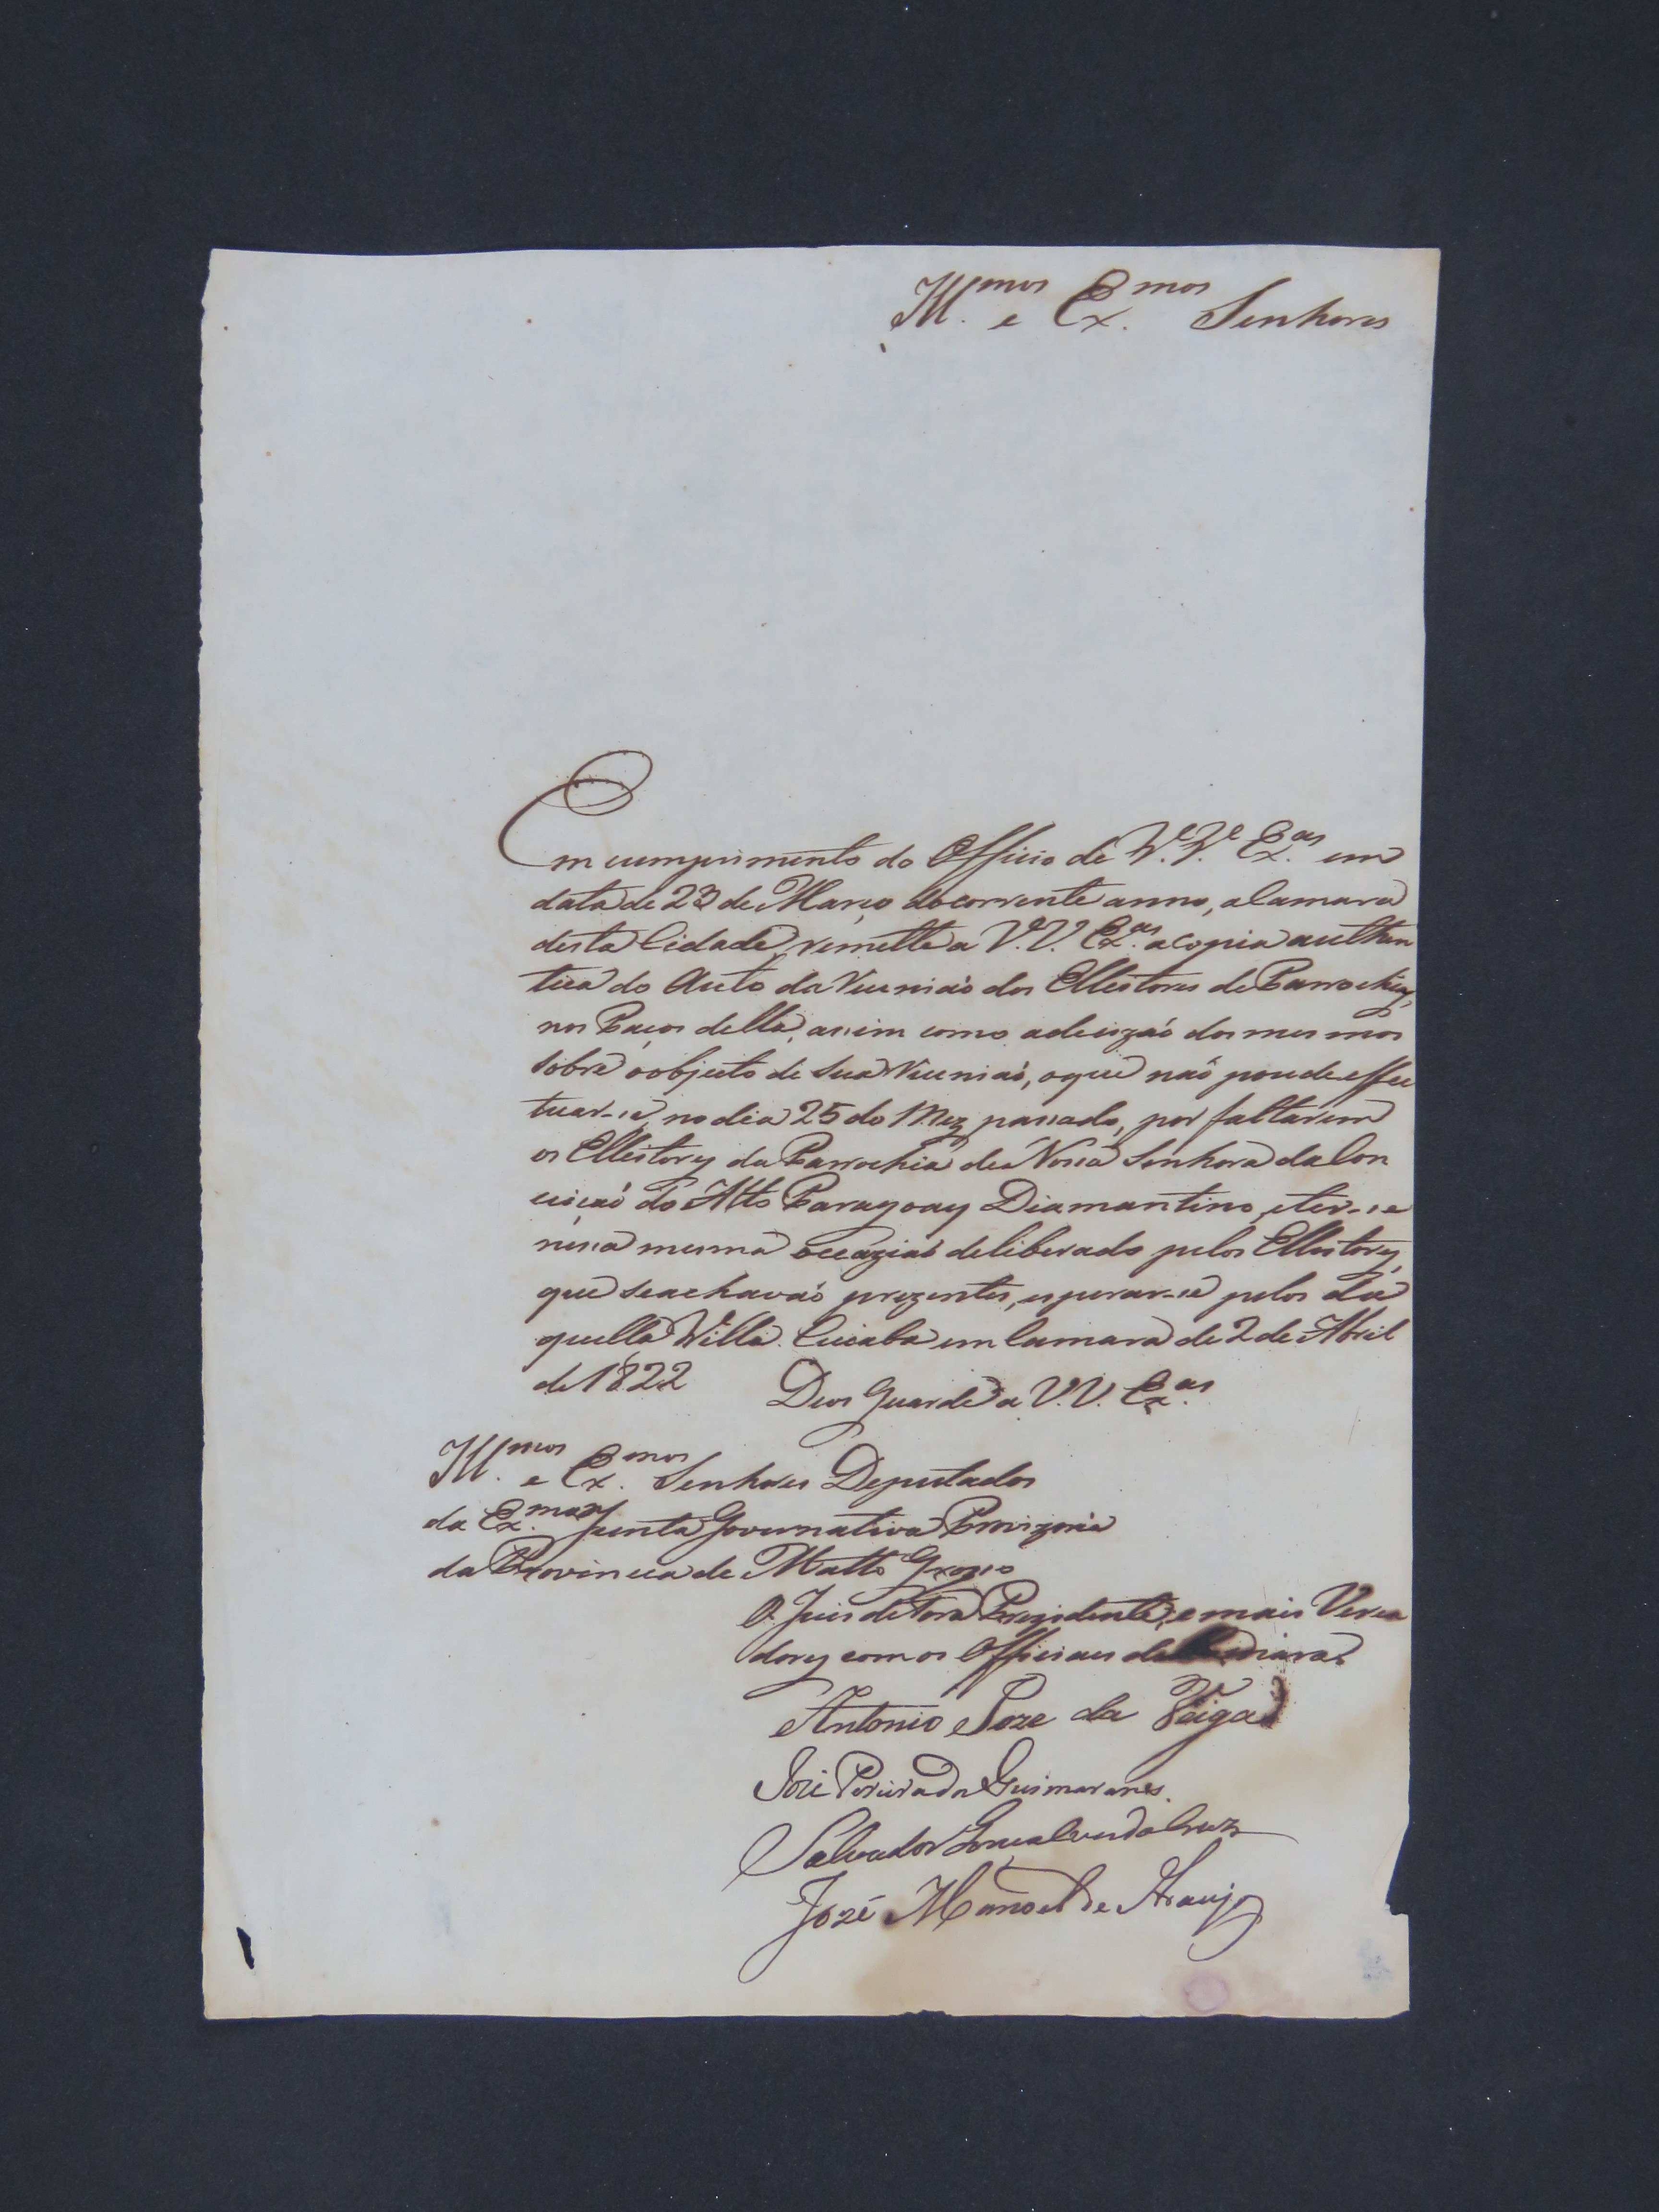 Ill.mos e Ex.mos Senhores
Em cumprimento do Officio de V.es V.es Ex.as em
data de 23 de Março do corrente anno, a Camara
desta Cidade, remette a V.V. Ex.as a copia authen
tica do Auto da Reuniaõ dos Elleitores de Parrochias,
nos Paços della, assim como a decizaõ dos mesmos
sobre o objecto de sua Reuniaõ, o que naõ poude effec
tuar-se, no dia 25 do Mez passado, por faltarem
os Elleitores da Parrochia de Nossa Senhora da Con
ceiçaõ do Alto Paragoay Diamantino, e ter-se
nessa mesma occaziaõ deliberado pelos Elleitores,
que se achavaõ prezentes, esperar-se pelos da
quella Villa. Cuiaba em Camara de 2 de Abril
de 1822
Deos Guarde a V.V. Ex.as
Ill.mos e Ex.mos Senhores Deputados
da Ex.ma Junta Governativa Provizoria
da Provincia de Matto Grosso
O Juis de Fora Prezidente, e mais Verea
dores com os Officiaes da Camara.
Antonio Joze da Veiga
José Pereira da Guimaraes.
Salvador Gonçalves da Cruz
José Manoel de Araujo